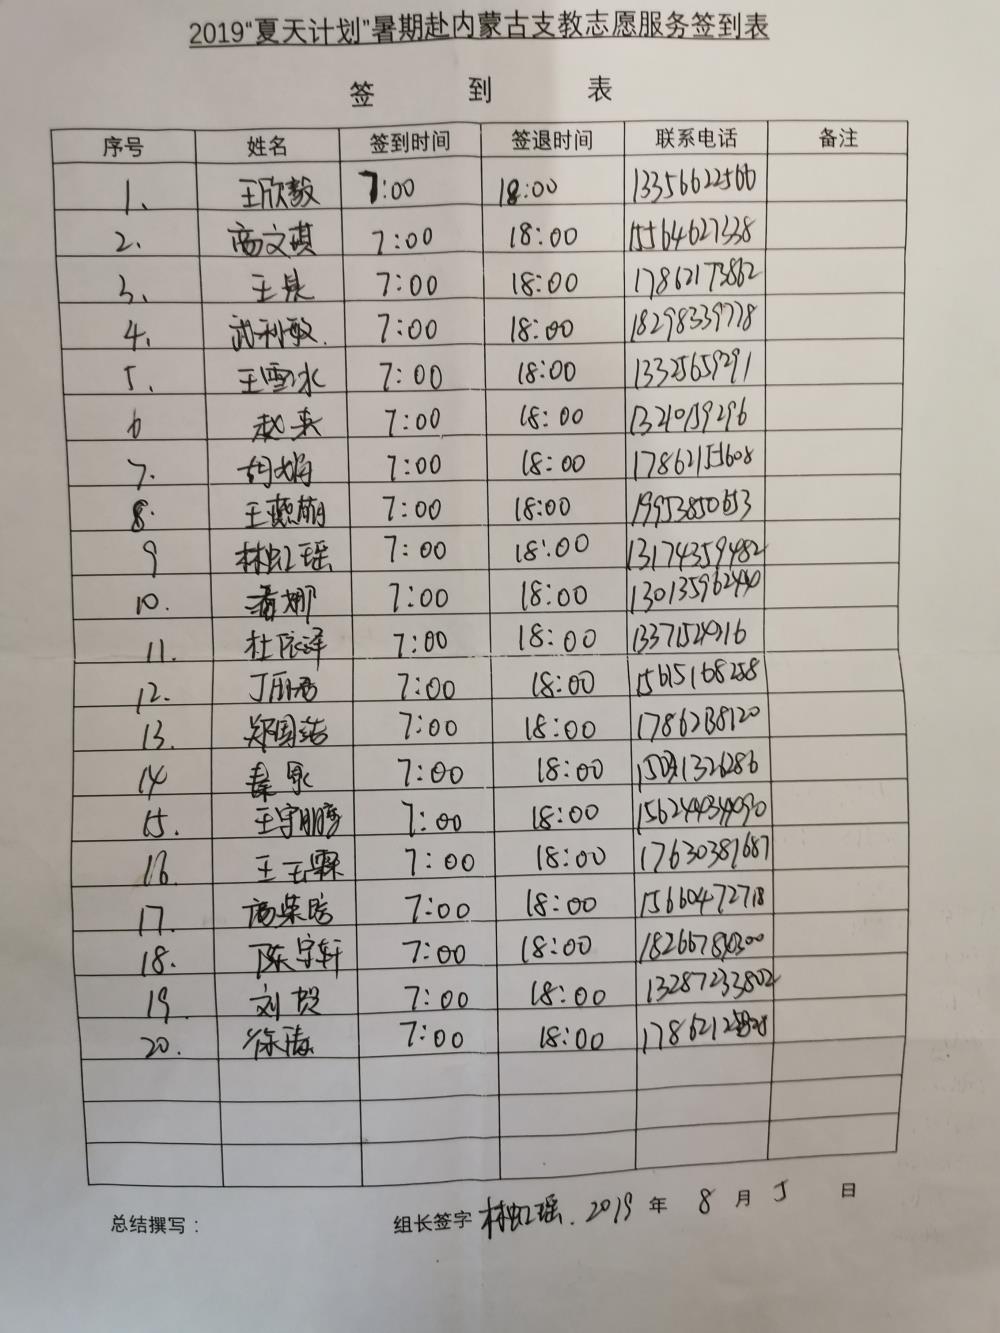 2019“夏天计划”暑期赴内蒙古支教志愿服务签到表
签 到 表
序号 姓名 签到时间 签退时间 联系电话 备注
1、 王欣毅 7:00 18:00 13356622566
2. 商文琪 7:00 18:00 15564627338
3、 王 7:00 18:00 17862173862
4. 武利敏. 7:00 18:00 18298339778
5. 王雪冰 7:00 18:00 13325659291
6 赵 7:00 18:00 13210159296
7. 胡娟 7:00 18:00 17862155608
8. 王燕萌 7:00 18:00 19953850653
9 林虹瑶 7:00 18:00 13174359482
10. 娜 7:00 18:00 13013596244
11. 杜依泽 7:00 18:00
12. 丁丽君 7:00 18:00 15615168258
13. 郑国洁 7:00 18:00
14 秦泉 7:00 18:00
15. 王宇鹏 7:00 18:00
16. 王玉霖 7:00 18:00 17630387687
17. 商荣浩 7:00 18:00 15660472718
18. 陈宇轩 7:00 18:00
19. 刘贺 7:00 18:00 13287233802
20. 徐涛 7:00 18:00
总结撰写： 组长签字 林虹瑶. 2019 年 8 月 5 日